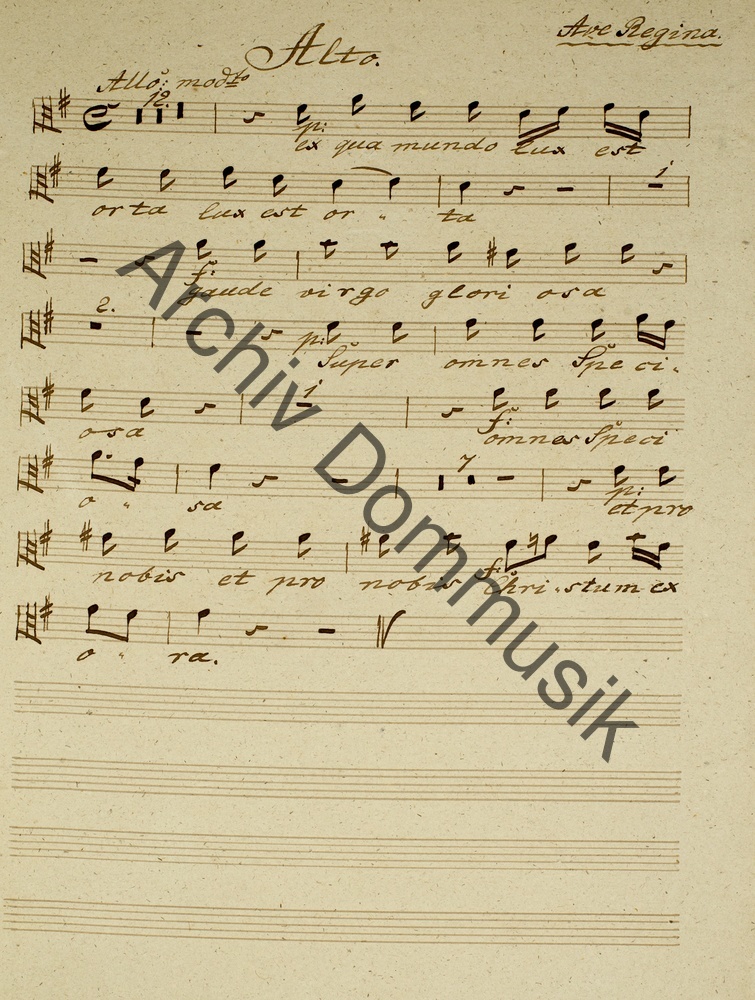 Ave Regina.
Alto.
Allo: modto
12.
p:
ex qua mundo lux est
1
orta lux est or „ ta
f:
gaude virgo glori osa
2.
p:
Super omnes Speci„
1
osa f: omnes Speci
7
o „ sa p: et pro
nobis et pro nobis f: Chri„stum ex
o „ ra.
Archiv Dommusik